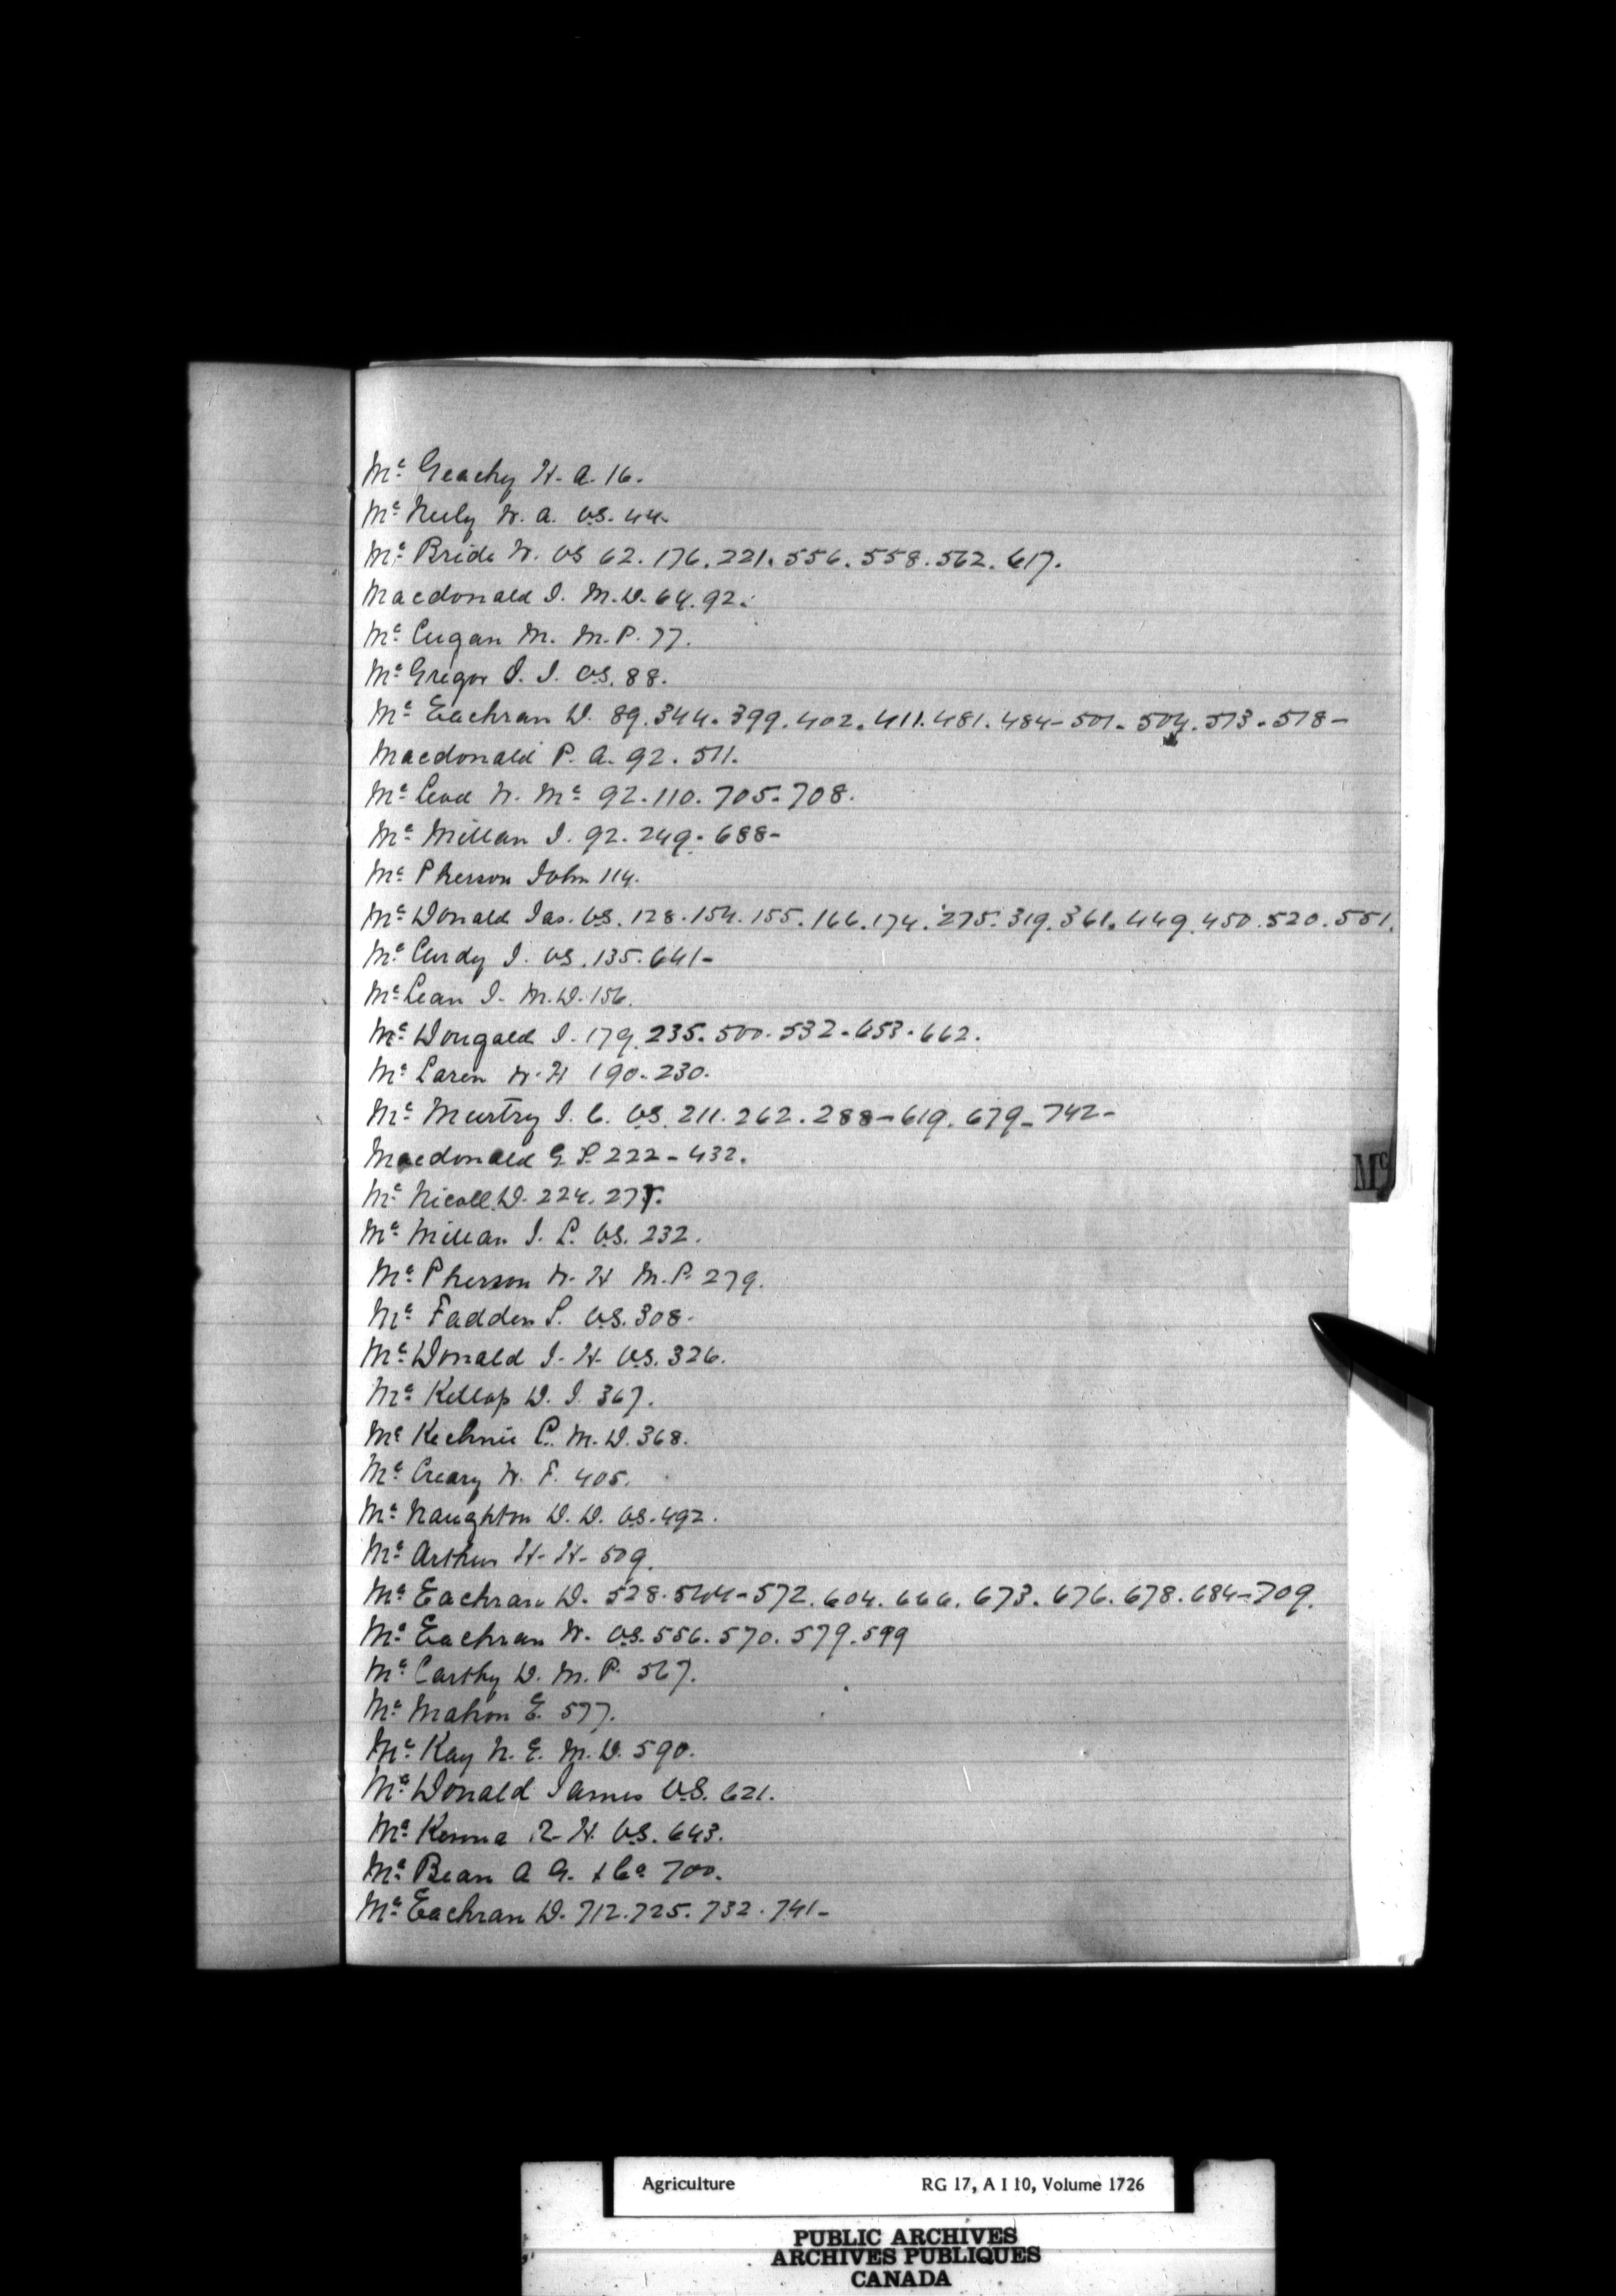 Mc Geachy H. A. 16.
Mc Neely W. A. V.S. 44.
Mc Bride W. VS 62. 176. 221. 556. 558. 562. 617.
Macdonald J. M.D. 64. 92.
Mc Gugan M. M.P. 77.
Mc Gregor J. J. V.S. 88.
Mc Eachran D. 89. 344. 399. 402. 411. 481. 484- 501. 504. 573. 578-
Macdonald P. A. 92. 511.
Mc Leod N. Mc 92. 110. 705. 708.
Mc Millan J. 92. 249. 688-
Mc Pherson John 114.
Mc Donald Jas. V.S. 128. 154. 155. 166. 174. 275. 319. 361. 449. 450. 520. 551.
Mc Curdy J. VS. 135. 641-
Mc Lean J. M.D. 156.
Mc Dougald J. 179. 235. 500. 532. 653. 662.
Mc Laren W. H 190. 230.
Mc Murtry J. C. VS. 211. 262. 288- 619. 679- 742-
Macdonald G L. 222- 432.
Mc Nicoll D. 224.
Mc Millan J. L. VS. 232.
Mc Pherson W. H M.P. 279.
Mc Fadden S. V.S. 308.
Mc Donald J. H. V.S. 326.
Mc Kellop D. J. 367.
Mc Kechnie C. M.D. 368.
Mc Creary W. F. 405.
Mc Naughton D. D. VS. 492.
Mc Arthur H. H. 509.
Mc Eachran D. 528. 544- 572. 604. 666. 673. 676. 678. 684- 709.
Mc Eachran W. V.S. 556. 570. 579. 599
Mc Carthy D. M.P. 567.
Mc Mahon E. 577.
Mc Kay N. E. M.D. 590.
Mc Donald James V.S. 621.
Mc Kenna R. H. V.S. 643.
Mc Bean A G. & Co 700.
Mc Eachran D. 712. 725. 732. 741-
Mc
Agriculture RG 17, A I 10, Volume 1726
PUBLIC ARCHIVES
ARCHIVES PUBLIQUES
CANADA